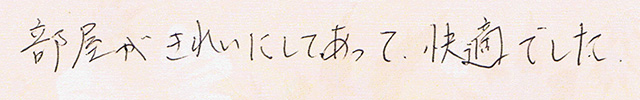 部屋がきれいにしてあって、快適でした.